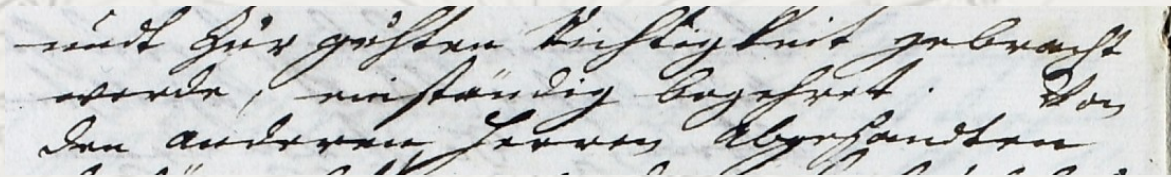 undt Zur guhten Richtigkeit gebracht
werde, einständig begehret. Von
den anderen Herren Abgesandten